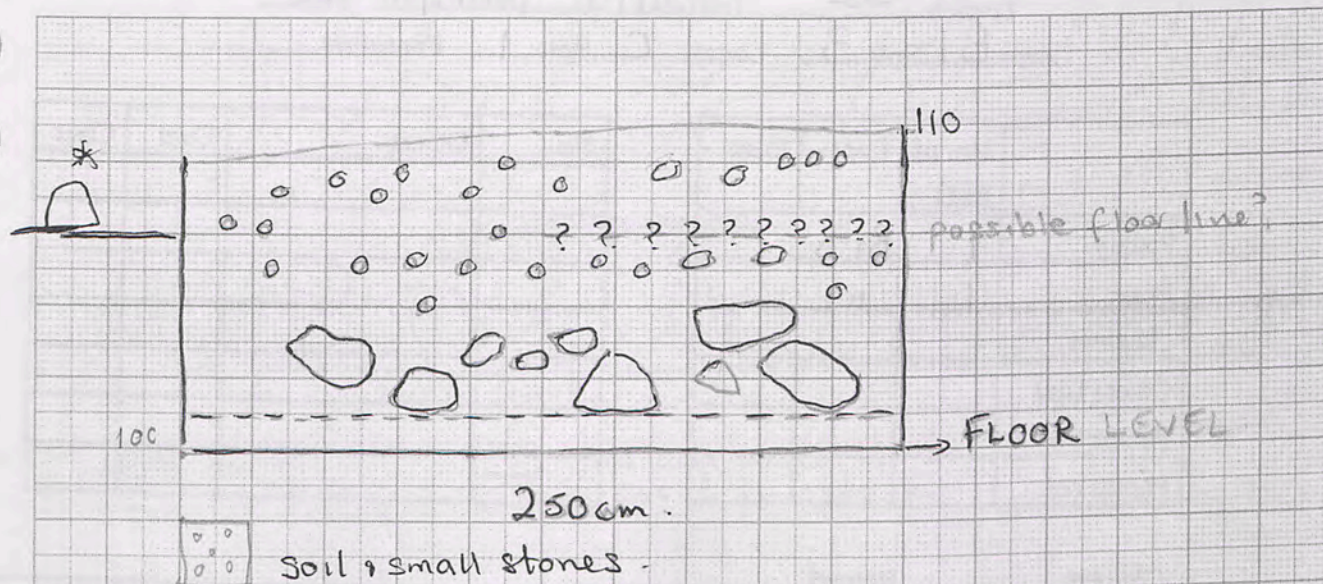 110
*
? ? ? ? ? ? ? ? ? possible floor line?
100
FLOOR LEVEL
250cm.
soil & small stones.